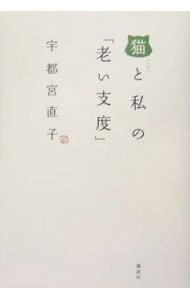 猫と私の
「老い支度」
宇都宮直子
講談社